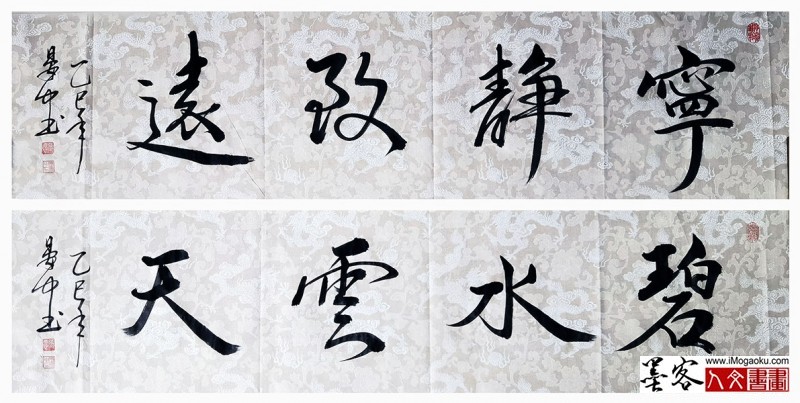 寧靜致遠
乙巳年
碧水雲天
乙巳年
www.iMogaoku.com
墨客
人文書畫